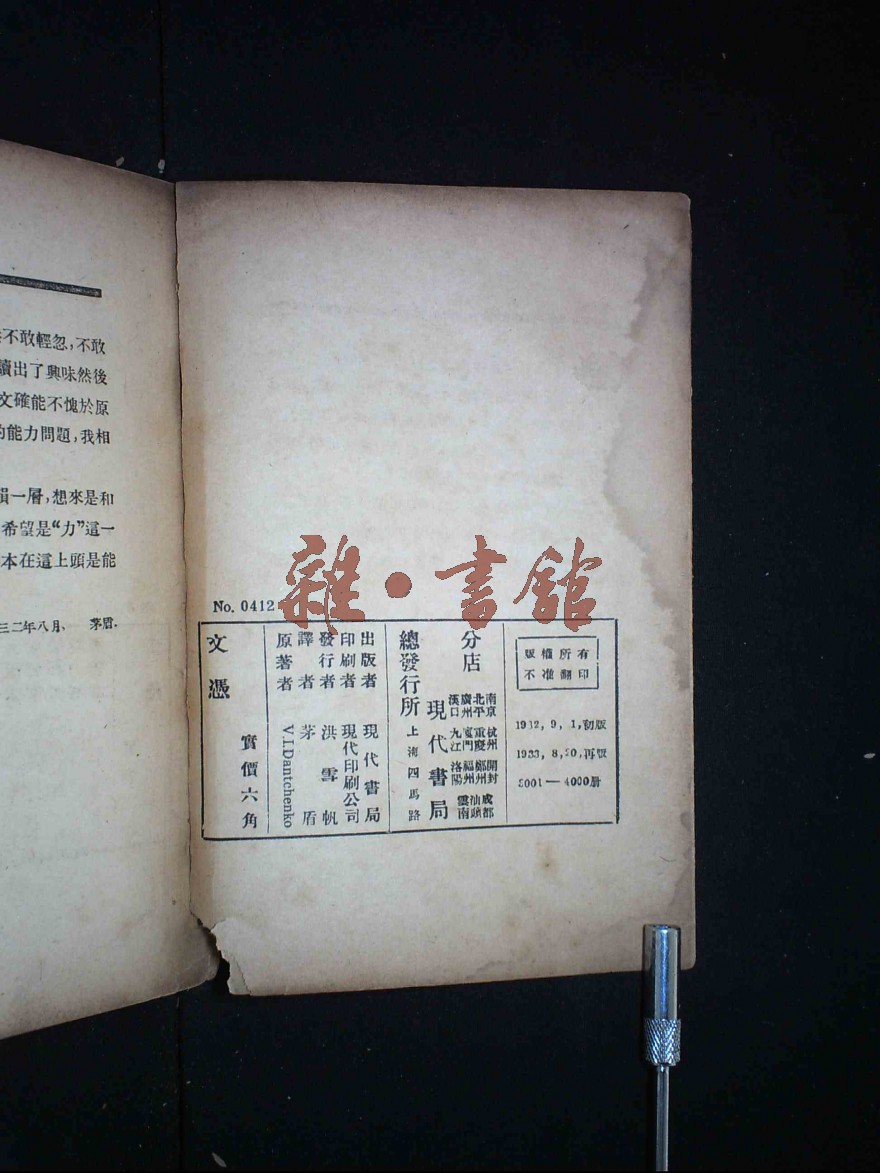 不敢輕忽,不敢
讀出了興味然後
文確能不愧於原
的能力問題,我相
一層,想來是和
希望是“力”這一
本在這上頭是能
三二年八月、 茅盾.
No. 0412
雜·書館
版權所有
不准翻印
1932, 9, 1,初版
1933, 8, 20,再版
—4000册
分店
南京 杭州 開封 成都
北平 重慶 鄭州 汕頭
廣州 廈門 福州 雲南
漢口 九江 洛陽
現代書局
總發行所 上海四馬路
出版者 現代書局
印刷者 現代印刷公司
發行者 洪雪帆
譯者 茅盾
原著者 V.I.Dantchenko
實價六角
文憑